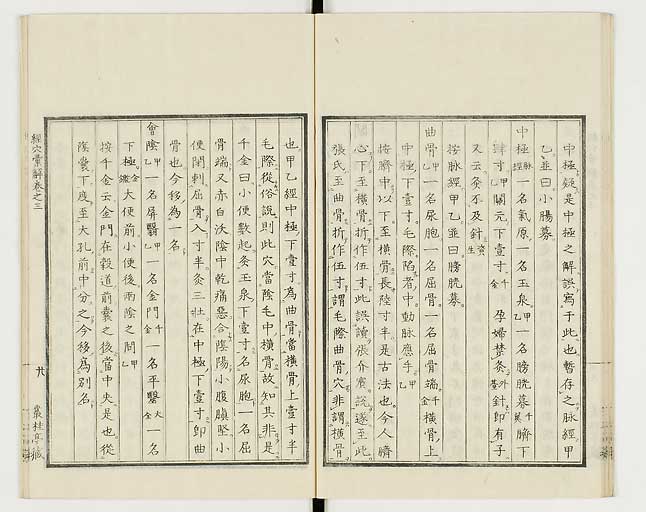 中極疑是中極之解誤寫于此也暫存之脉經甲
乙並曰小腸募
中極脉經一名氣原一名玉泉甲乙一名膀胱募千臍下
肆寸甲關元下壹寸千金孕婦禁灸外臺針即有子
又云灸不及針資生
按脉經甲乙並曰膀胱募
曲骨甲乙一名尿胞一名屈骨一名屈骨端千金橫骨上
中極下壹寸毛際陷者中動脉應手甲乙
按臍中以下至橫骨長陸寸半是古法也今人臍
心下至橫骨折作伍寸此誤讀張介賓説遂至此
張氏至曲骨折作伍寸謂毛際曲骨穴非謂橫骨
也甲乙經中極下壹寸為曲骨當橫骨上壹寸半
毛際從俗説則此穴當陰毛中橫骨故知其非是
千金曰小便數起灸玉泉下壹寸名尿胞一名屈
骨端又赤白沃陰中乾痛惡合陰陽小腹䐜堅小
便閉刺屈骨入寸半灸三壯在中極下壹寸即曲
骨也今移為一名
會陰甲乙一名屏翳甲乙一名金門千金一名平翳大全一名
下極金鑑大便前小便後兩陰之間甲乙
按千金云金門在穀道前囊之後當中央是也從
陰囊下度至大孔前中分之今移為別名
經穴彙解卷之三
廿
叢桂亭藏